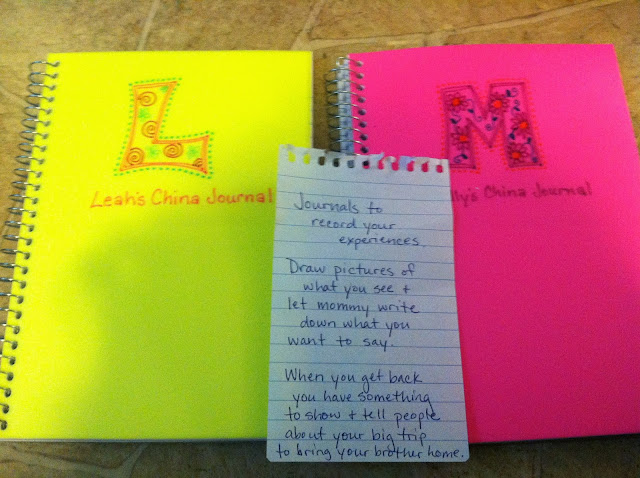 L
Leah's China Journal
M
lly's China Journal
Journals to
record your
experiences.
Draw pictures of
what you see +
let mommy write
down what you
want to say.
When you get back
you have something
to show + tell people
about your big trip
to bring your brother home.